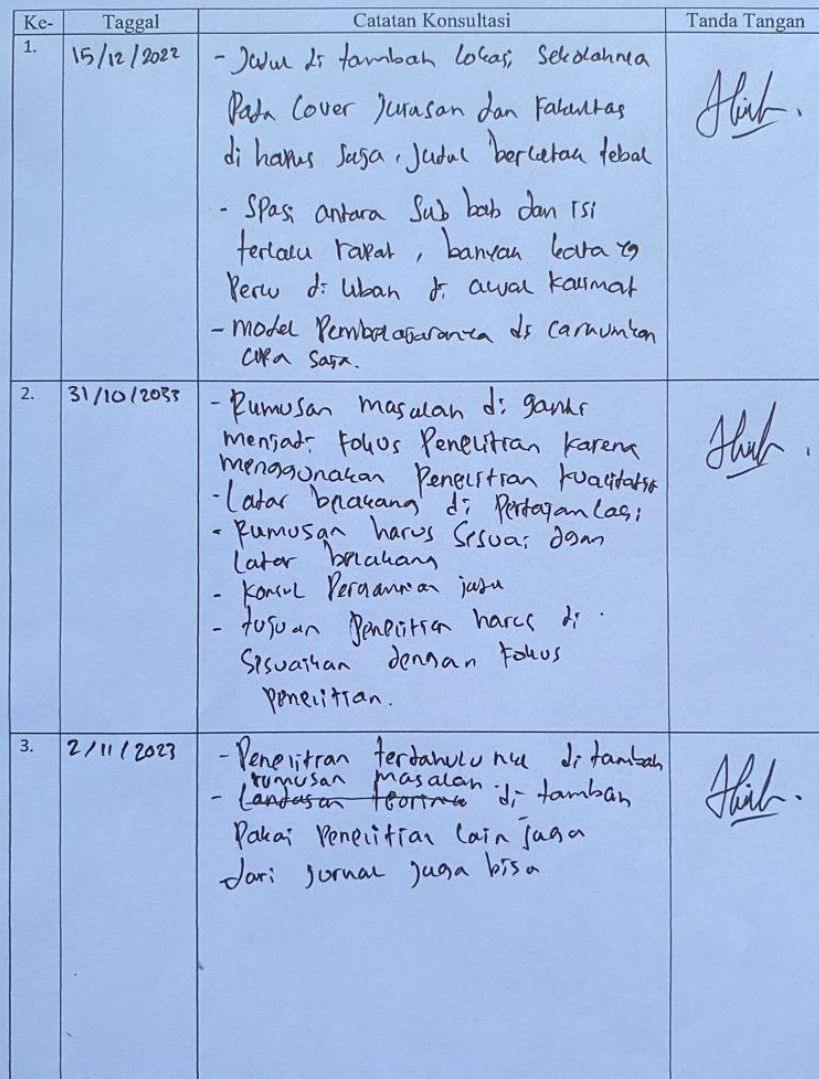 Ke- Taggal Catatan Konsultasi Tanda Tangan
1. 15/12/2022 - Judul di tambah lokasi sekolahnya
Pada Cover Jurusan dan Fakultas
di hapus saja, Judul bercetak tebal
- Spasi antara Sub bab dan isi
terlalu rapat, banyak kata yg
Perlu di ubah di awal kalimat
- model Pembelajarannya di cantumkan
saja.
2. 31/10/2033 - Rumusan masalah di ganti
menjadi Fokus Penelitian karena
menggunakan Penelitian kualitatif
- Latar belakang di Pertajam lagi
- Rumusan harus sesuai dgan
Latar belakang
- Konsul Pergantian judul
- tujuan Penelitian harus di
Sesuaikan dengan Fokus
Penelitian.
3. 2/11/2023 - Penelitian terdahulu nya di tambah
rumusan masalah
- Landasan teorinya di tambah
Pakai Penelitian lain juga
dari jurnal juga bisa